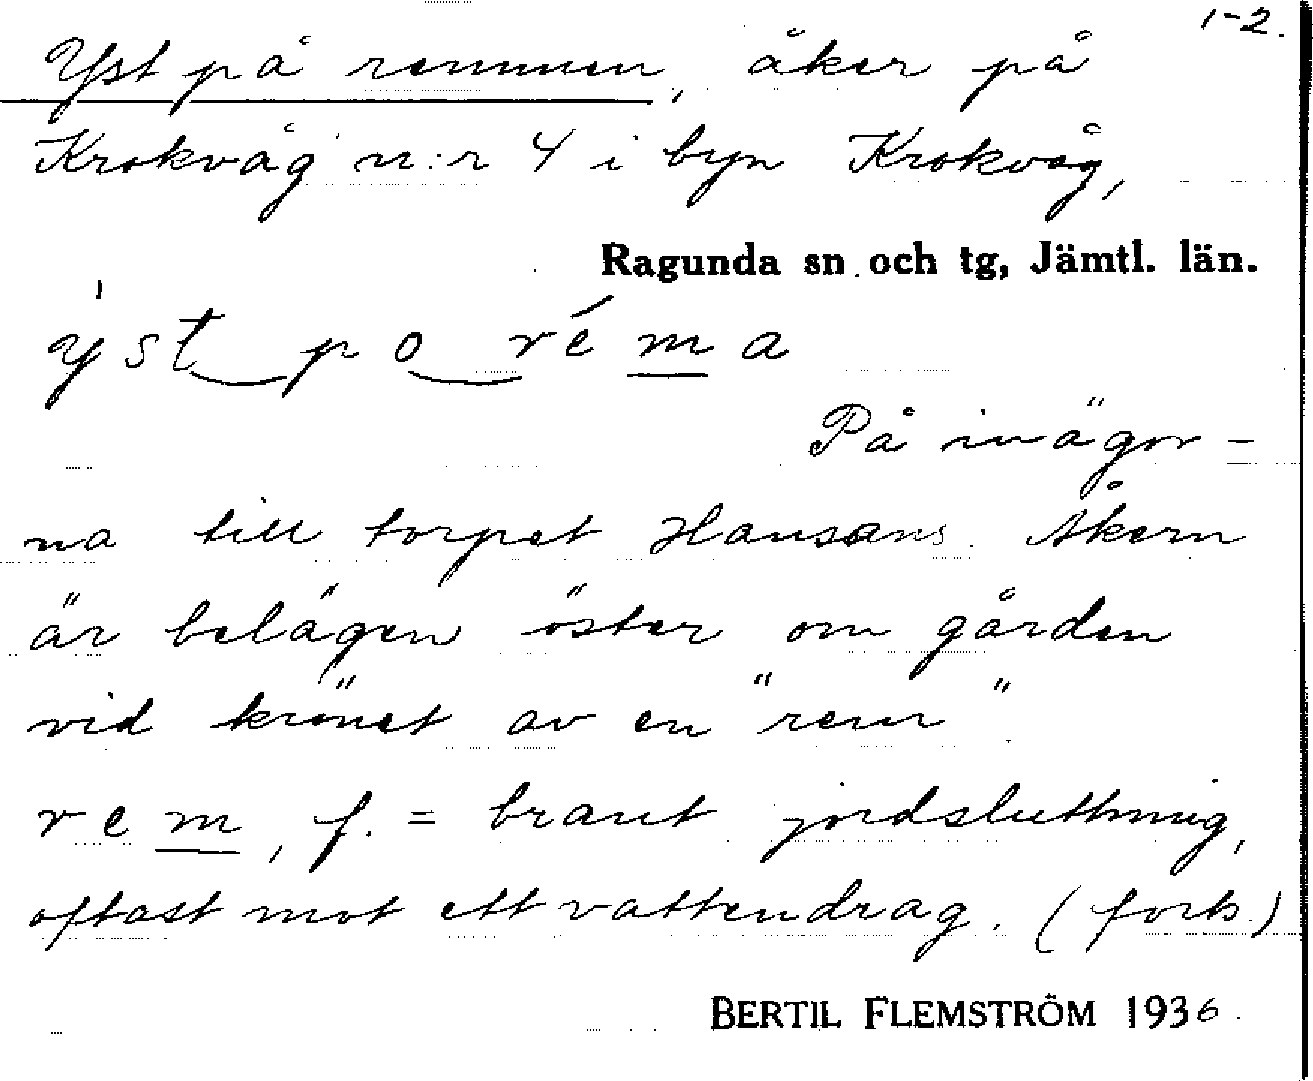 1-2.
Yst på remmen, åker på
Krokvåg n:r 4 i byn Krokvåg,
Ragunda sn och tg, Jämtl. län.
ýst po réma
På inägor-
na till torpet Hansans. Åkern
är belägen öster om gården
vid krönet av en "rem"
rem, f. = brant jordsluttning,
oftast mot ett vattendrag. (forts.)
BERTIL FLEMSTRÖM 1936.